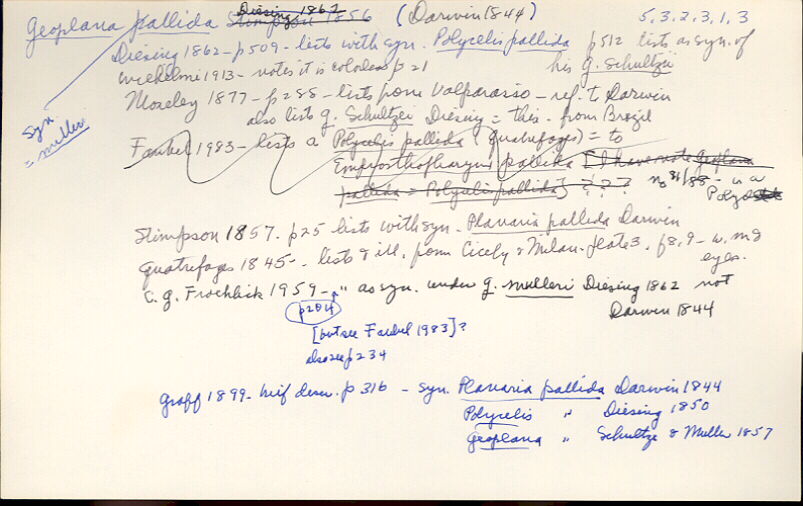 Geoplana pallida Diesing 1862 Stimpson 1856 (Darwin 1844) 5,3,2,3,1,3
Diesing 1862 - p509 - lists with syn. Polycelis pallida p512 lists as syn. of
Wilhelmi 1913 - notes it is colorless p21 his G. Schultzii
Moseley 1877 - p288 - lists from Valparasso - ref. to Darwin
also lists G. Schultzei Diesing = this - from Brazil
syn = mulleri
Faubel 1983 - lists a Polycelis pallida (Quatrefages) = to
Emprosthopharynx pallida [I have note Geoplana
pallida = Polycelis pallida] ? ? ? no
Stimpson 1857. p25 lists with syn. Planaria pallida Darwin
Quatrefages 1845 - lists & ill. from Cicely & Milan. plate 3. f8,9 - w. mg
eyes.
C. G. Froehlich 1959 - " as syn. under G. mulleri Diesing 1862 not
p204 Darwin 1844
[but see Faubel 1983]?
also see p234
Graff 1899 - brief descr. p316 - syn. Planaria pallida Darwin 1844
Polycelis " Diesing 1850
Geoplana " Schultze & Muller 1857